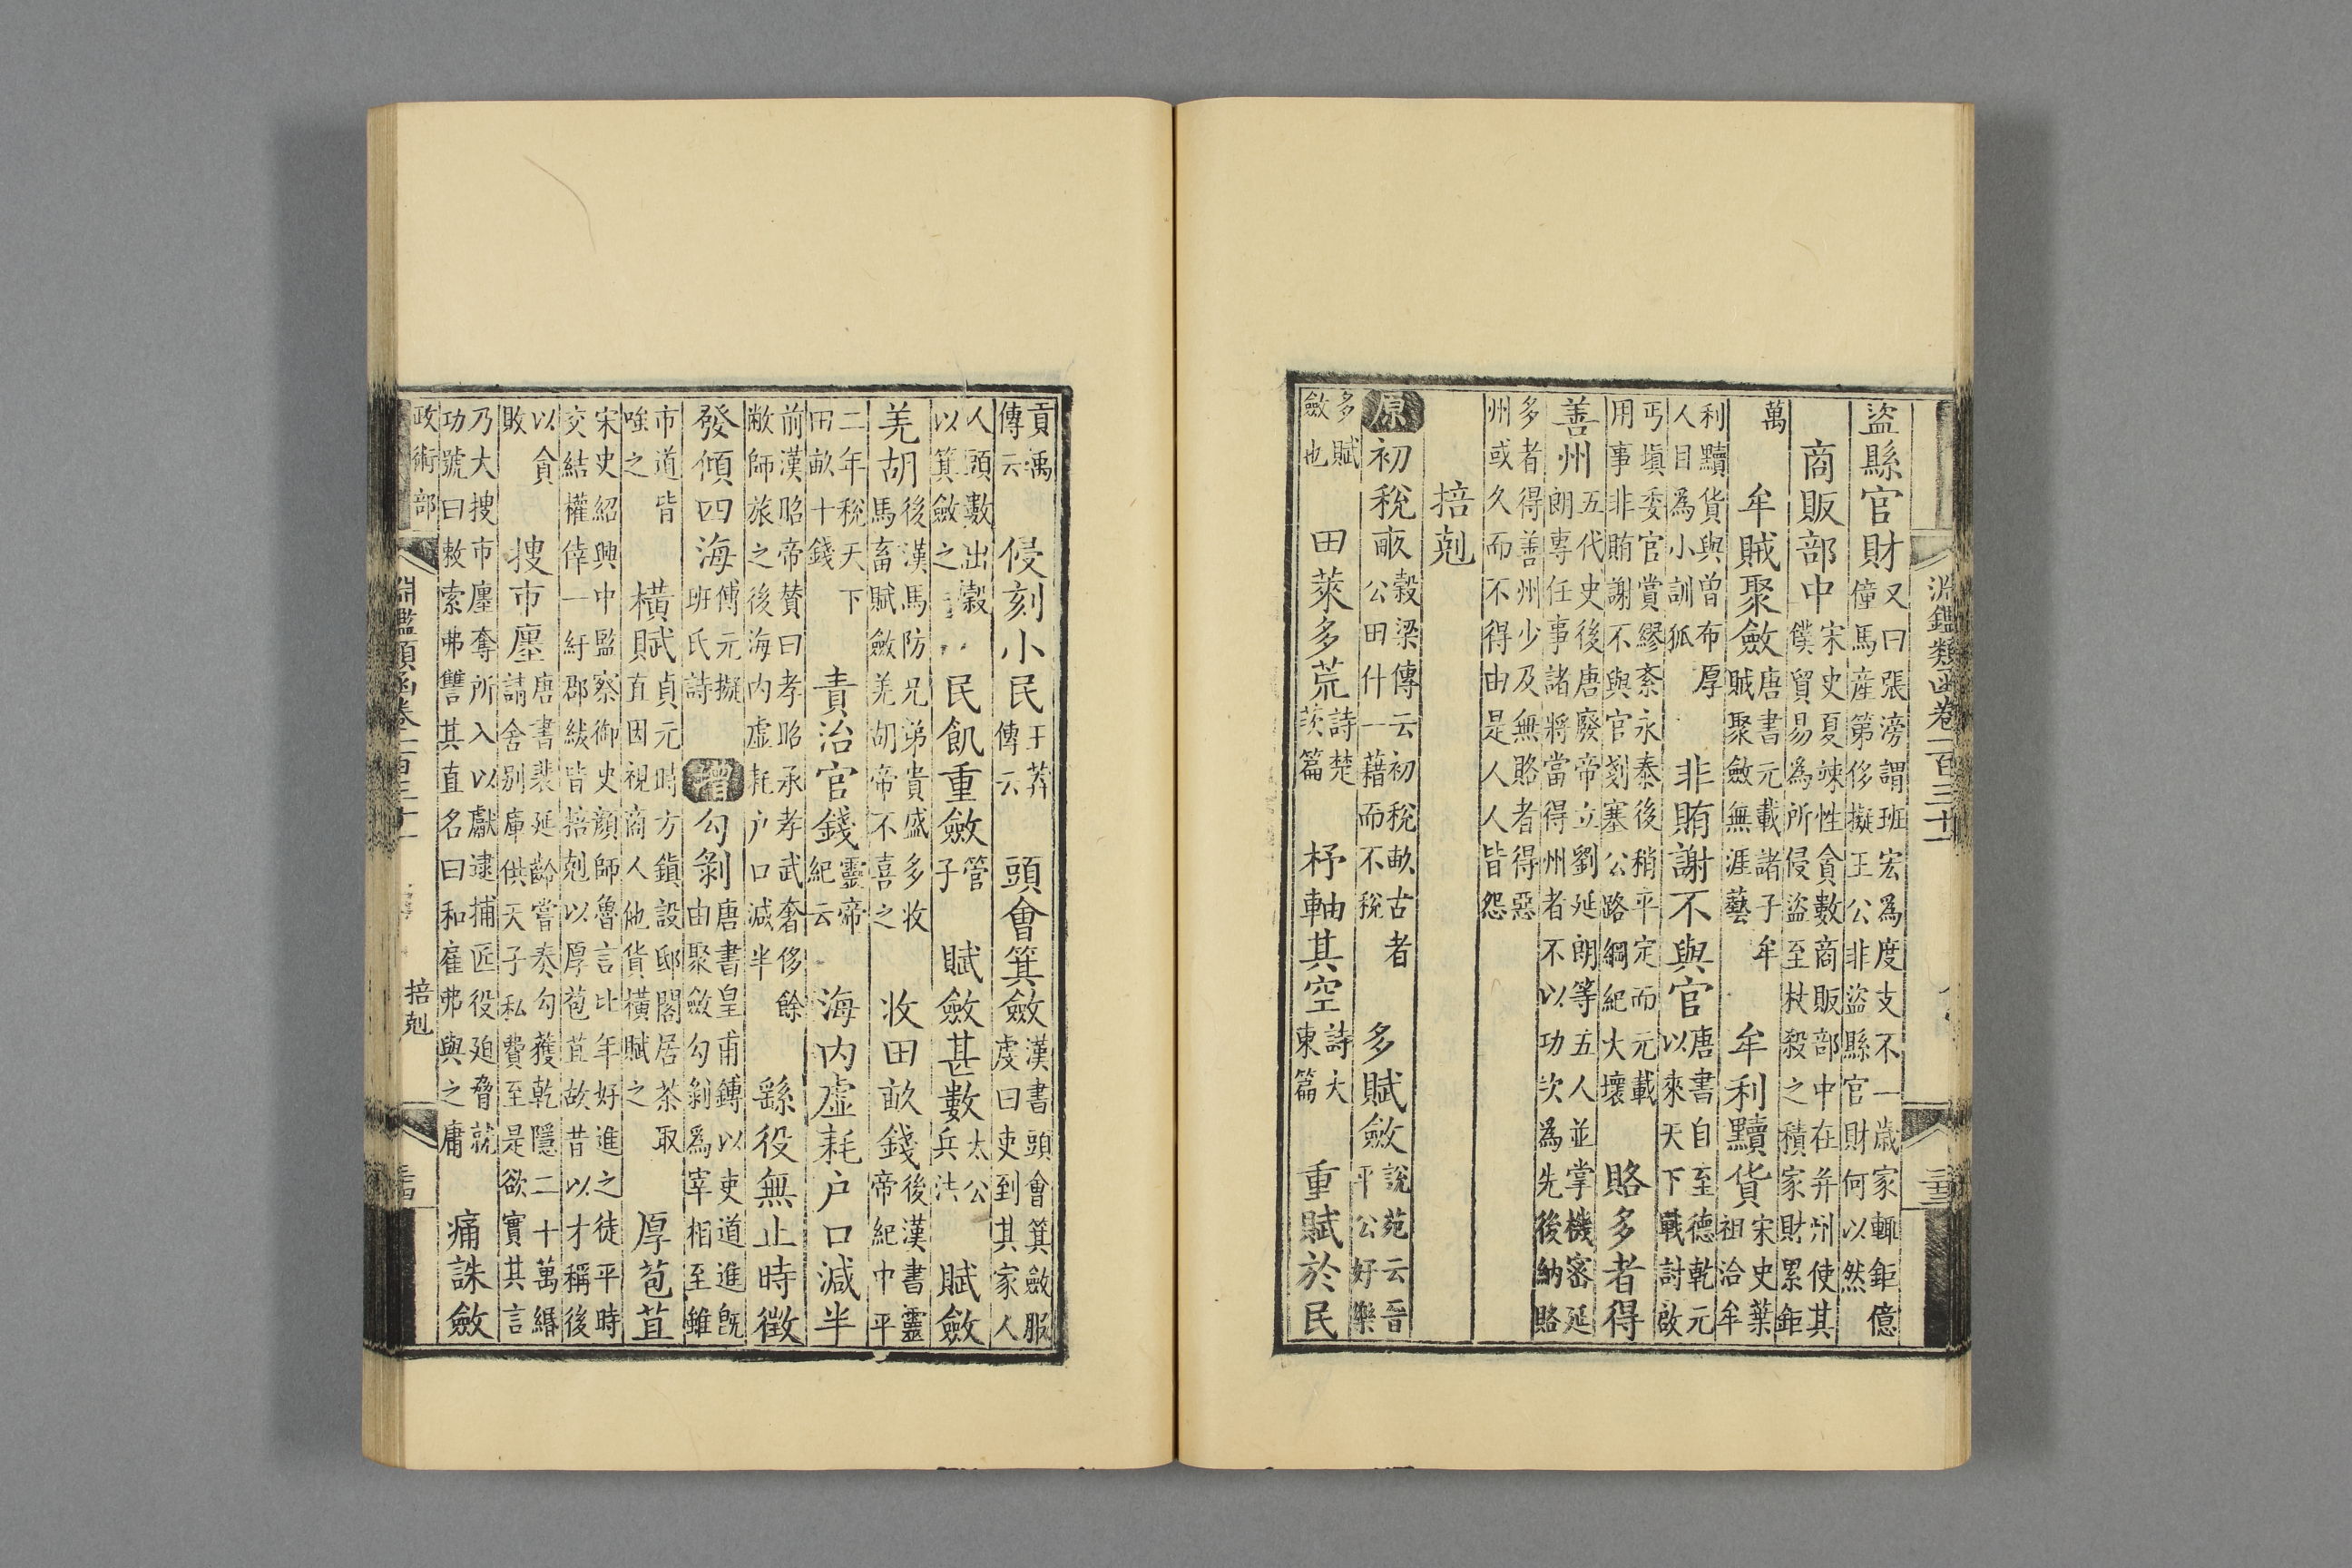 淵鑑類函卷一百三十一 三十三
盜縣官財又曰張滂謂班宏為度支不一歲家輒鉅億僮馬產第侈擬王公非盜縣官財何以然
商販部中宋史夏竦性貪數商販部中在并州使其僕貿易為所侵盜至杖殺之積家財累鉅
萬 牟賊聚斂唐書元載諸子牟賊聚斂無涯藝 牟利黷貨宋史葉祖洽牟
利黷貨與曾布厚人目為小訓狐 非賄謝不與官唐書自至德乾元以來天下戰討啟
丐塡委官賞繆紊永泰後稍平定而元載用事非賄謝不與官剗塞公路綱紀大壞 賂多者得
善州五代史後唐廢帝立劉延朗等五人並掌機密延朗專任事諸將當得州者不以功次為先後納賂
多者得善州少及無賂者得惡州或久而不得由是人人皆怨
掊剋
原初稅畞穀梁傳云初稅畝古者公田什一藉而不稅 多賦斂說苑云晉平公好樂
多賦斂也 田萊多荒詩楚茨篇 杼軸其空詩大東篇 重賦於民
貢禹傳云 侵刻小民王莽傳云 頭會箕斂漢書頭會箕斂服虔曰吏到其家人
人頭數出穀以箕斂之 民飢重斂管子 賦斂甚數太公兵法 賦斂
羌胡後漢馬防兄弟貴盛多收馬畜賦斂羌胡帝不喜之 收田畝錢後漢書靈帝紀中平
二年稅天下田畝十錢 責治官錢靈帝紀云 海內虛耗户口減半
前漢昭帝贊曰孝昭承孝武奢侈餘敝師旅之後海內虛耗户口減半 繇役無止時徵
發傾四海傅元擬班氏詩 增勾剝唐書皇甫鎛以吏道進既由聚斂勾剝為宰相至雖
市道皆嗤之 橫賦貞元時方鎮設邸閣居茶取直因視商人他貨橫賦之 厚苞苴
宋史紹興中監察御史顏師魯言比年好進之徒平時交結權倖一紆郡紱皆掊剋以厚苞苴故昔以才稱後
以貪敗 搜市廛唐書裴延齡嘗奏勾獲乾隱二十萬緡請舍別庫供天子私費至是欲實其言
乃大搜市廛奪所入以獻逮捕匠役廹脅就功號曰敕索弗讐其直名曰和雇弗與之庸 痛誅斂
政術部 淵鑑類函卷一百三十一 掊剋 三十四